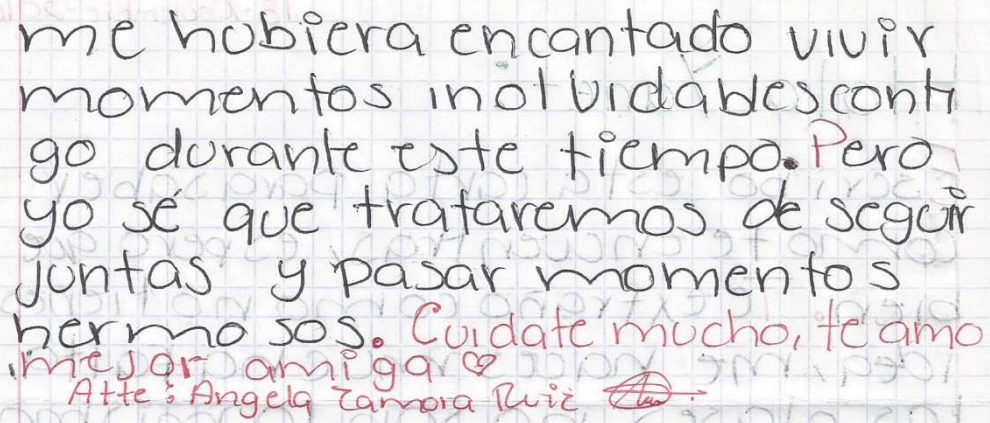 me hubiera encantado vivir
momentos inolvidables conti
go durante este tiempo. Pero
yo sé que trataremos de seguir
juntas y pasar momentos
hermosos. Cuidate mucho, te amo
mejor amiga
Atte: Angela Zamora Ruiz